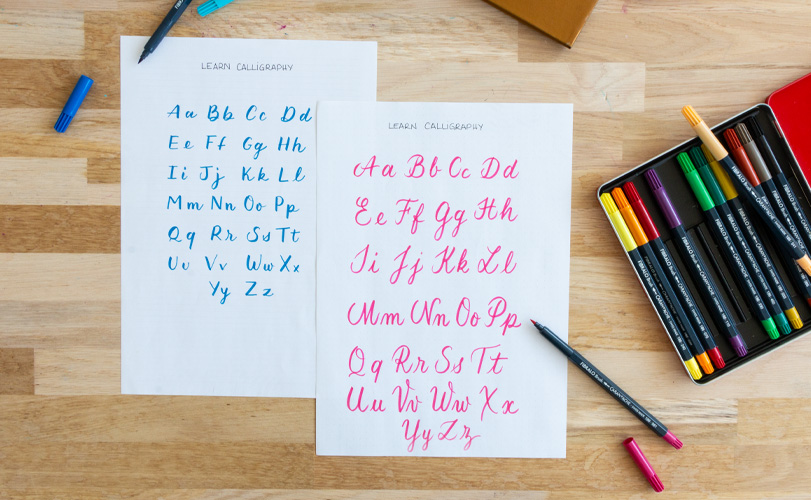 LEARN CALLIGRAPHY
Aa Bb Cc Dd
Ee Ff Gg Hh
Ii Jj Kk Ll
Mm Nn Oo Pp
Qq Rr Ss Tt
Uu Vv Ww Xx
Yy Zz
LEARN CALLIGRAPHY
Aa Bb Cc Dd
Ee Ff Gg Hh
Ii Jj Kk Ll
Mm Nn Oo Pp
Qq Rr Ss Tt
Uu Vv Ww Xx
Yy Zz
FIBRALO Brush CARAN D'ACHE